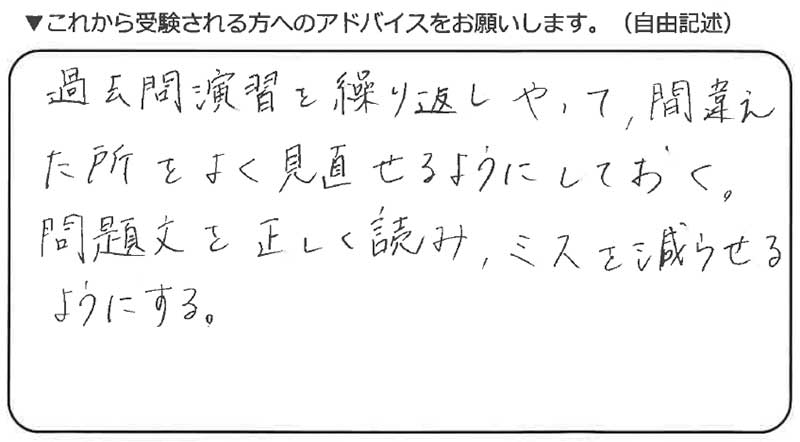 ▼これから受験される方へのアドバイスをお願いします。（自由記述）
過去問演習を繰り返しやって,間違え
た所をよく見直せるようにしておく。
問題文を正しく読み,ミスを減らせる
ようにする。